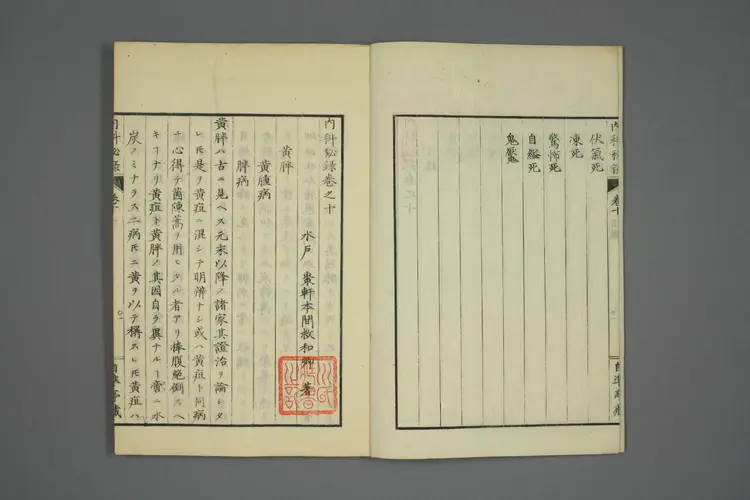 伏氣死
凍死
驚怖死
自縊死
鬼魘
内科秘録卷之十
水戸 棗軒本間救和卿 著
黄胖
黄腫病
胖病
黄胖ハ古ニ見ヘス元末以降ノ諸家其證治ヲ論シタ
レ𪜈是ヲ黄疸ニ混シテ明辨ナシ或ハ黄疸ト同病
ト心得テ茵陳蒿ヲ用ヒタル者アリ捧腹絶倒スヘ
キコナリ黄疸ト黄胖ノ其因自ラ異ナルコ啻ニ水
炭ノミナラス二病𪜈ニ黄ヲ以テ稱スレ𪜈黄疸ハ
内科秘録
卷十
自準亭藏